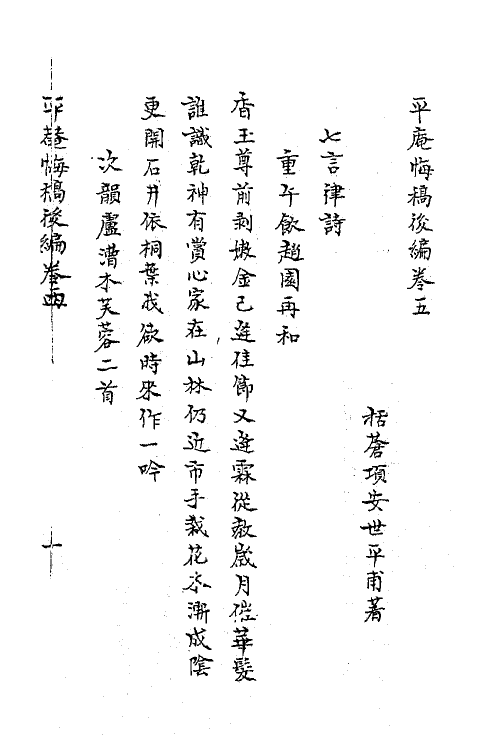 平庵悔稿後編卷五
括蒼項安世平甫著
七言律詩
重午飲趙園再和
香玉尊前剥嫩金已逢佳節又逢霖從教嵗月催華髮
誰識乾神有賞心家在山林仍近市手栽花木漸成陰
更開石井依桐葉我欲時來作一吟
次韻盧漕木芙蓉二首
平菴悔稿後編卷
一